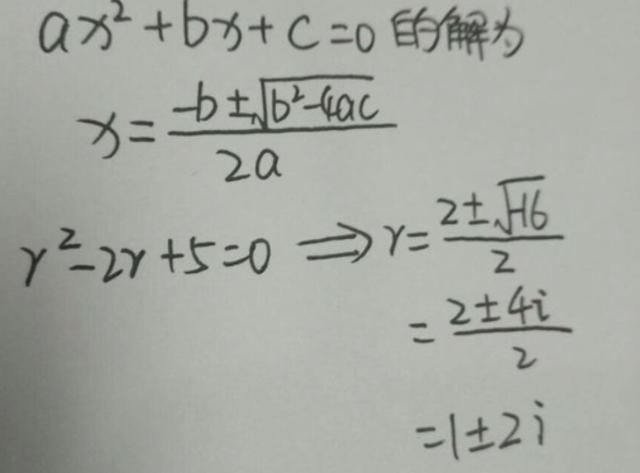 ax²+bx+c=0 的解为
x = (-b±√(b²-4ac))/(2a)
r²-2r+5=0 ⟹ r = (2±√(-16))/2
= (2±4i)/2
=1±2i